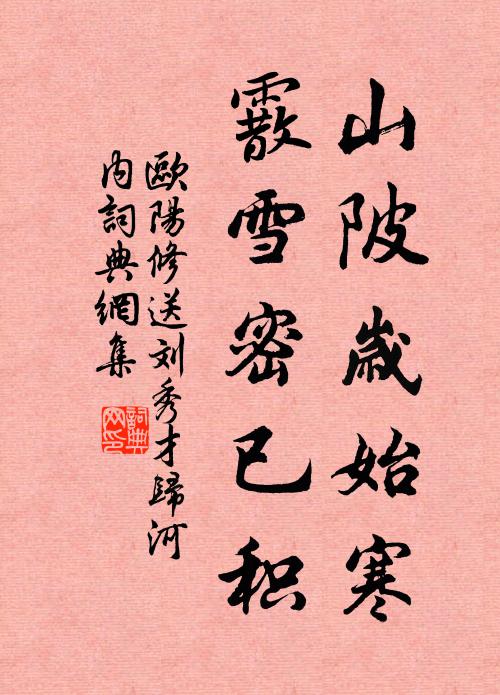 山陂歲始寒
霰雪密已积
歐陽修送刘秀才歸河
内詞典網集
詞典
网印